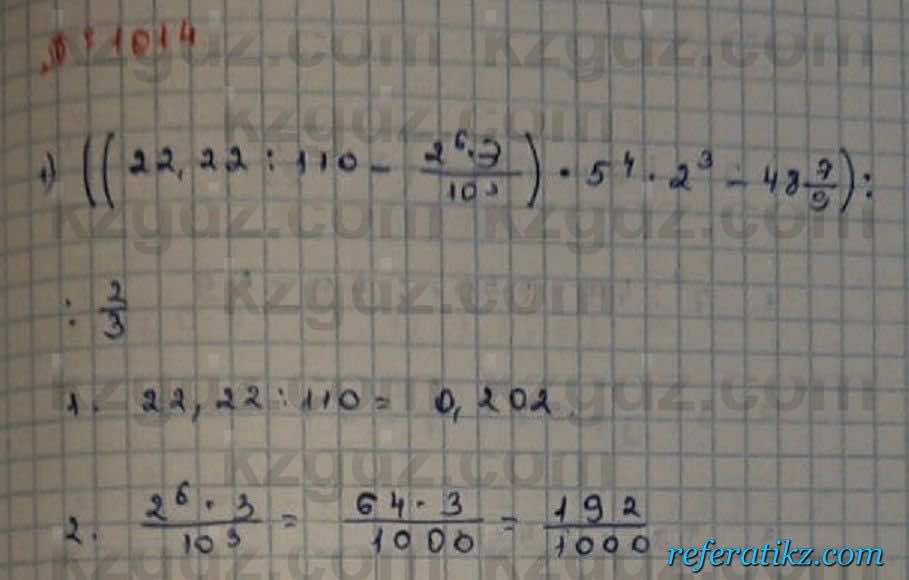 № 1014
1) ((22,22 : 110 - 2⁶·3/10³) · 5⁴ · 2³ - 48 7/9) :
: 2/3
1. 22,22 : 110 = 0,202.
2. 2⁶ · 3/10³ = 64 · 3/1000 = 192/1000
kzgdz.com
referatikz.com